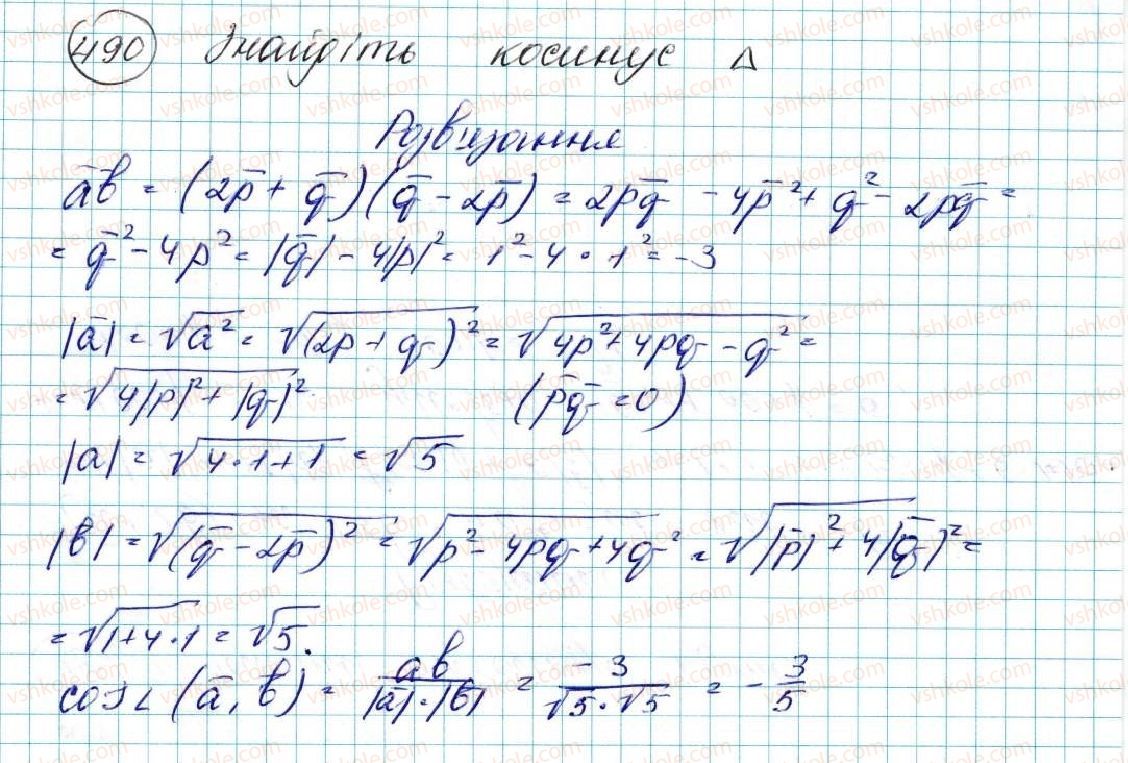 490 Знайдіть косинус Δ
Розв'язання
āb̄ = (2p̄ + q̄)(q̄ - 2p̄) = 2pq̄ - 4p̄² + q² - 2pq̄ =
= q̄² - 4p² = |q̄| - 4|p|² = 1² - 4 · 1² = -3
|ā| = √a² = √(2p + q)² = √4p² + 4pq - q² =
= √4|p|² + |q|² (p̄q̄ = 0)
|a| = √4·1+1 = √5
|b| = √(q̄ - 2p̄)² = √p² - 4pq + 4q² = √|p̄|² + 4|q̄|² =
= √1+4·1 = √5.
cos∠(ā, b̄) = ab / |ā|·|b| = -3 / √5·√5 = - 3/5
vshkole.com